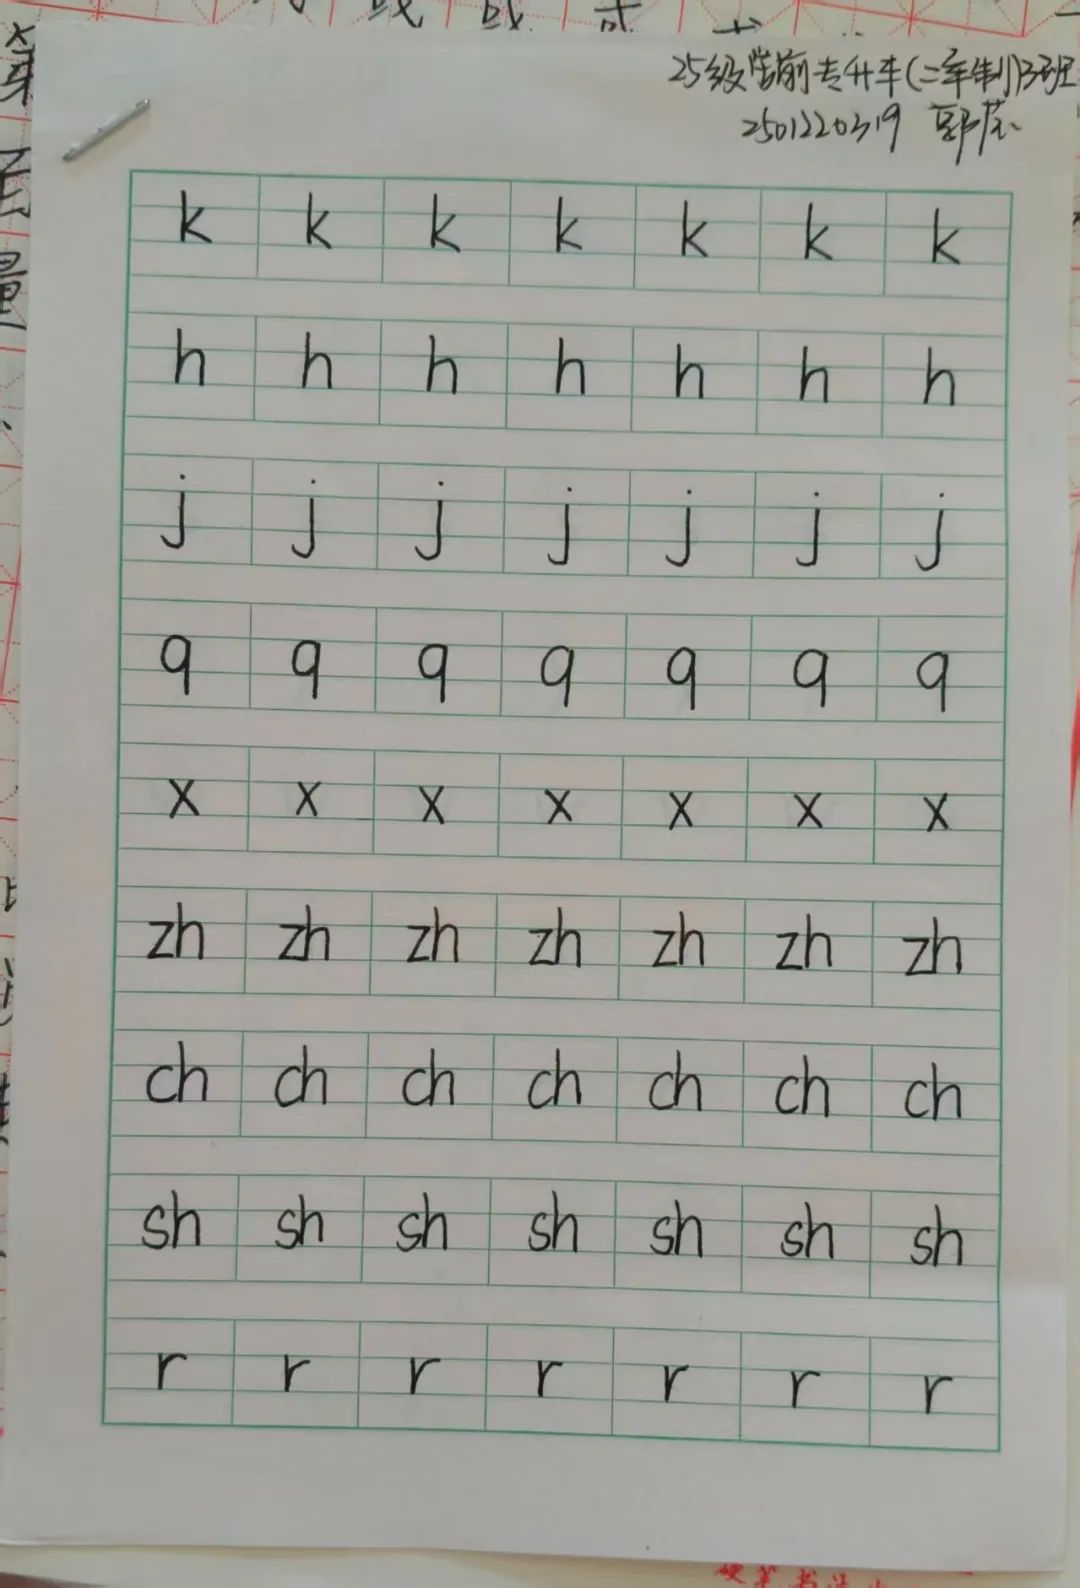 25级学前专升本(二年制)3班
2501220319 郭莹
k k k k k k k
h h h h h h h
j j j j j j j
q q q q q q q
x x x x x x x
zh zh zh zh zh zh zh
ch ch ch ch ch ch ch
sh sh sh sh sh sh sh
r r r r r r r
量